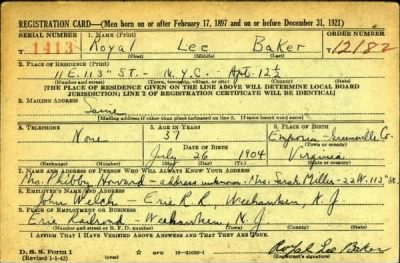 REGISTRATION CARD—(Men born on or after February 17, 1897 and on or before December 31, 1921)
SERIAL NUMBER 1. NAME (Print) ORDER NUMBER
T 1413 Royal Lee Baker 12182
(First) (Middle) (Last)
2. PLACE OF RESIDENCE (Print)
11 E. 113th ST. - N.Y.C. Apt. 12½
(Number and street) (Town, township, village, or city) (County) (State)
[THE PLACE OF RESIDENCE GIVEN ON THE LINE ABOVE WILL DETERMINE LOCAL BOARD
JURISDICTION; LINE 2 OF REGISTRATION CERTIFICATE WILL BE IDENTICAL]
3. MAILING ADDRESS
Same
[Mailing address if other than place indicated on line 2. If same insert word same]
4. TELEPHONE 5. AGE IN YEARS 6. PLACE OF BIRTH
None 37 Emporia - Greensville Co.
DATE OF BIRTH (Town or county)
July 26 1904 Virginia
(Exchange) (Number) (Mo.) (Day) (Yr.) (State or country)
7. NAME AND ADDRESS OF PERSON WHO WILL ALWAYS KNOW YOUR ADDRESS
Mrs. Howard - address unknown. Mrs. Sarah Miller - 22 W. 113th St.
8. EMPLOYER'S NAME AND ADDRESS
John Welch - Erie R.R., Weehawken, N.J.
9. PLACE OF EMPLOYMENT OR BUSINESS
Erie Railroad - Weehawken N.J.
(Number and street or R. F. D. number) (Town) (County) (State)
I AFFIRM THAT I HAVE VERIFIED ABOVE ANSWERS AND THAT THEY ARE TRUE.
D. S. S. Form 1
(Revised 1-1-42) Royal Lee Baker
(Registrant's signature)